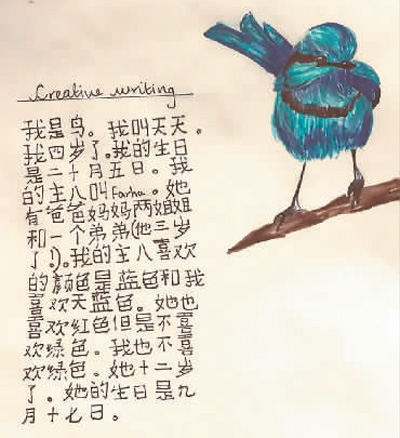 Creative writing
我是鸟。我叫天天。
我四岁了。我的生日
是二十月五日。我
的主八叫Farha。她
有爸爸妈妈两姐姐
和一个弟弟(他三岁
了!)。我的主八喜欢
的颜色是蓝色和我
喜欢天蓝色。她也
喜欢红色但是不喜
欢绿色。我也不喜
欢绿色。她十二岁
了。她的生日是九
月十七日。